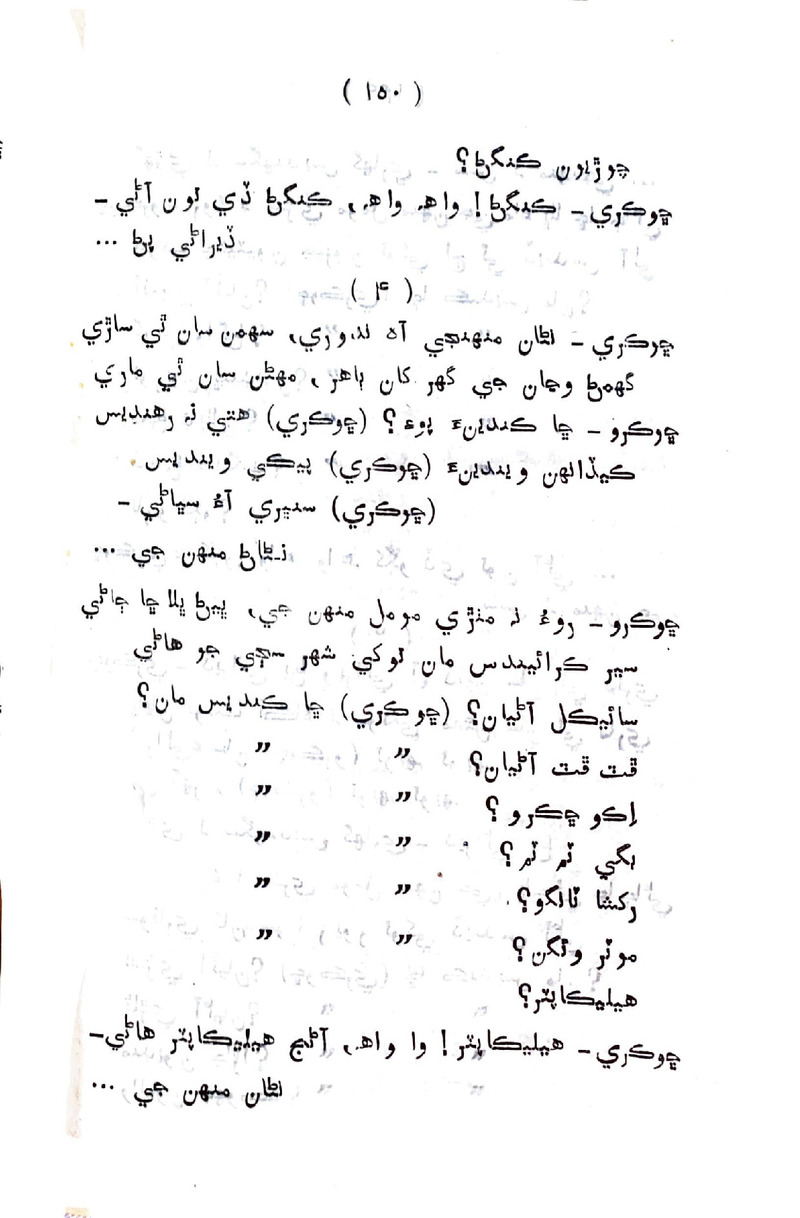 ( ١٥٠ )
چوڙيون ڪنگڻ؟
ڇوڪري - ڪنگڻ! واهه واهه، ڪنگڻ ڏي تون آڻي -
ڏيراڻي پڻ ...
( ۴ )
ڇوڪري - نڻان منهنجي آه ندوري، سهمن سان ٿي ساڙي
گهمڻ وڃان جي گهر کان ٻاهر، مهڻن سان ٿي ماري
ڇوڪرو - ڇا ڪندينءَ پوءِ؟ (ڇوڪري) هتي نه رهنديس
ڪيڏانهن ويندينءَ (ڇوڪري) پيڪي وينديس.
(ڇوڪري) سنڀري آءُ سڀاڻي -
نڻان منهن جي ...
ڇوڪرو - روءُ نه منڙي مومل منهن جي، ڀيڻ ڀلا ڇا ڄاڻي
سير ڪرائيندس مان توکي شهر سڄي جو هاڻي
سائيڪل آڻيان؟ (ڇوڪري) ڇا ڪنديس مان؟
ڦٽ ڦٽ آڻيان؟ " "
اِڪو ڇڪرو؟ " "
بگي ٽم ٽم؟ " "
رڪشا ٽانگو؟ " "
موٽر ويگن؟ " "
هيليڪاپٽر؟
ڇوڪري - هيليڪاپٽر! وا واهه، آڻج هيليڪاپٽر هاڻي -
نڻان منهن جي ...